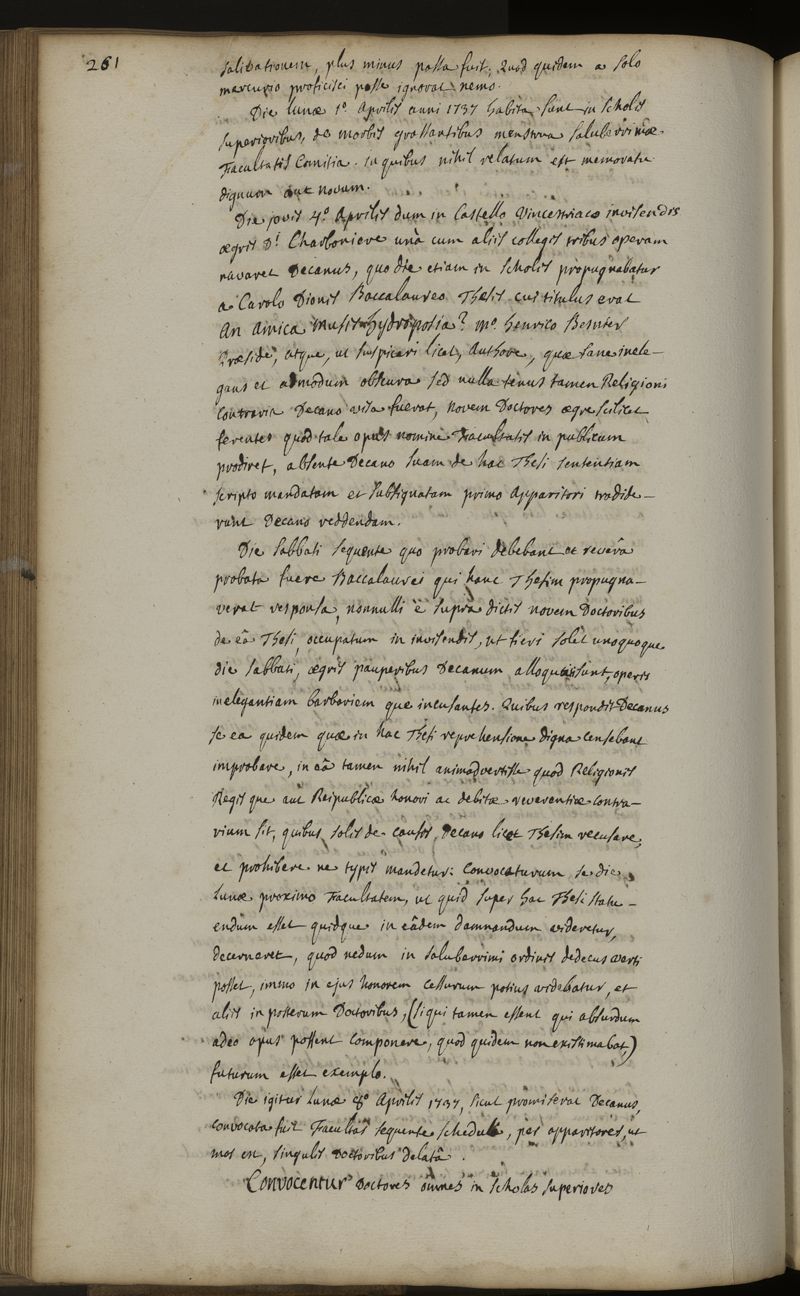 261
salivationem, plus minus passa fuit; Quod quidem a solo
mercurio proficisci posse ignorat nemo.
Die lunæ 1º Aprilis anni 1737 habita sunt in scholis
superioribus, de morbis grassantibus menstrua saluberrimæ
Facultatis Comitia. in quibus nihil relatum est memoratu
dignum aut novum.
Die jovis 4º Aprilis dum in Castello Vincenniaco invisendis
ægris Dⁱ Charboniere unà cum aliis collegis tribus operam
navaret Decanus, quo die etiam in scholis propugnabatur
a Carolo Dionis Baccalaureo Thesis cui titulus erat
An Amica Musis Hydroposia? Mº Henrico Besnier
Præside, atque, ut suspicari licet, Authore, quæ sane inele-
gans et admodum obscura sed nulla tenus tamen Religioni
Contraria Decano visa fuerat, novem Doctores ægre scilicet
ferentes quod tale opus nomine Facultatis in publicum
prodiret, absente Decano suam de hac Thesi sententiam
scripto mandatam et subsignatam primo Apparitori tradide-
runt Decano reddendam.
Die Sabbati sequente quo probari debebant et reverâ
probata fuere Baccalaurei qui hanc Thesim propugna-
verat responsa, nonnulli è supra dictis novem Doctoribus
de eâ Thesi, occupatum in invisendis, ut fieri solet unoquoque
die sabbati, ægris pauperibus Decanum alloquuti sunt, operis
inelegantiam barbariem que incusantes. Quibus respondit Decanus
se ea quidem quæ in hac Thesi reprehensione digna censebant
improbare, in eâ tamen nihil animadvertisse quod Religionis
Regis que aut Reipublicæ honori ac debitæ reverentiæ contra-
rium sit, quibus solis de causis Decano licet Thesim recusare,
et prohibere ne typis mandetur: Convocaturum se die
Lunæ proximo Facultatem, ut quid super hac Thesi statu-
endum esset quidque in eâdem damnandum videretur,
decerneret, quod nedum in saluberrimi ordinis dedecus verti
posset, immo in ejus honorem cessurum potius videbatur, et
aliis in posterum Doctoribus, (si qui tamen essent qui absurdum
adeo opus possent componere, quod quidem non existimabat,)
futurum esset exemplo.
Die igitur Lunæ 8º Aprilis 1737, sicut promiserat Decanus,
convocata fuit Facultas sequente schedula, per apparitores, ut
mos est, singulis Doctoribus delatâ.
Convocentur Doctores omnes in scholas superiores